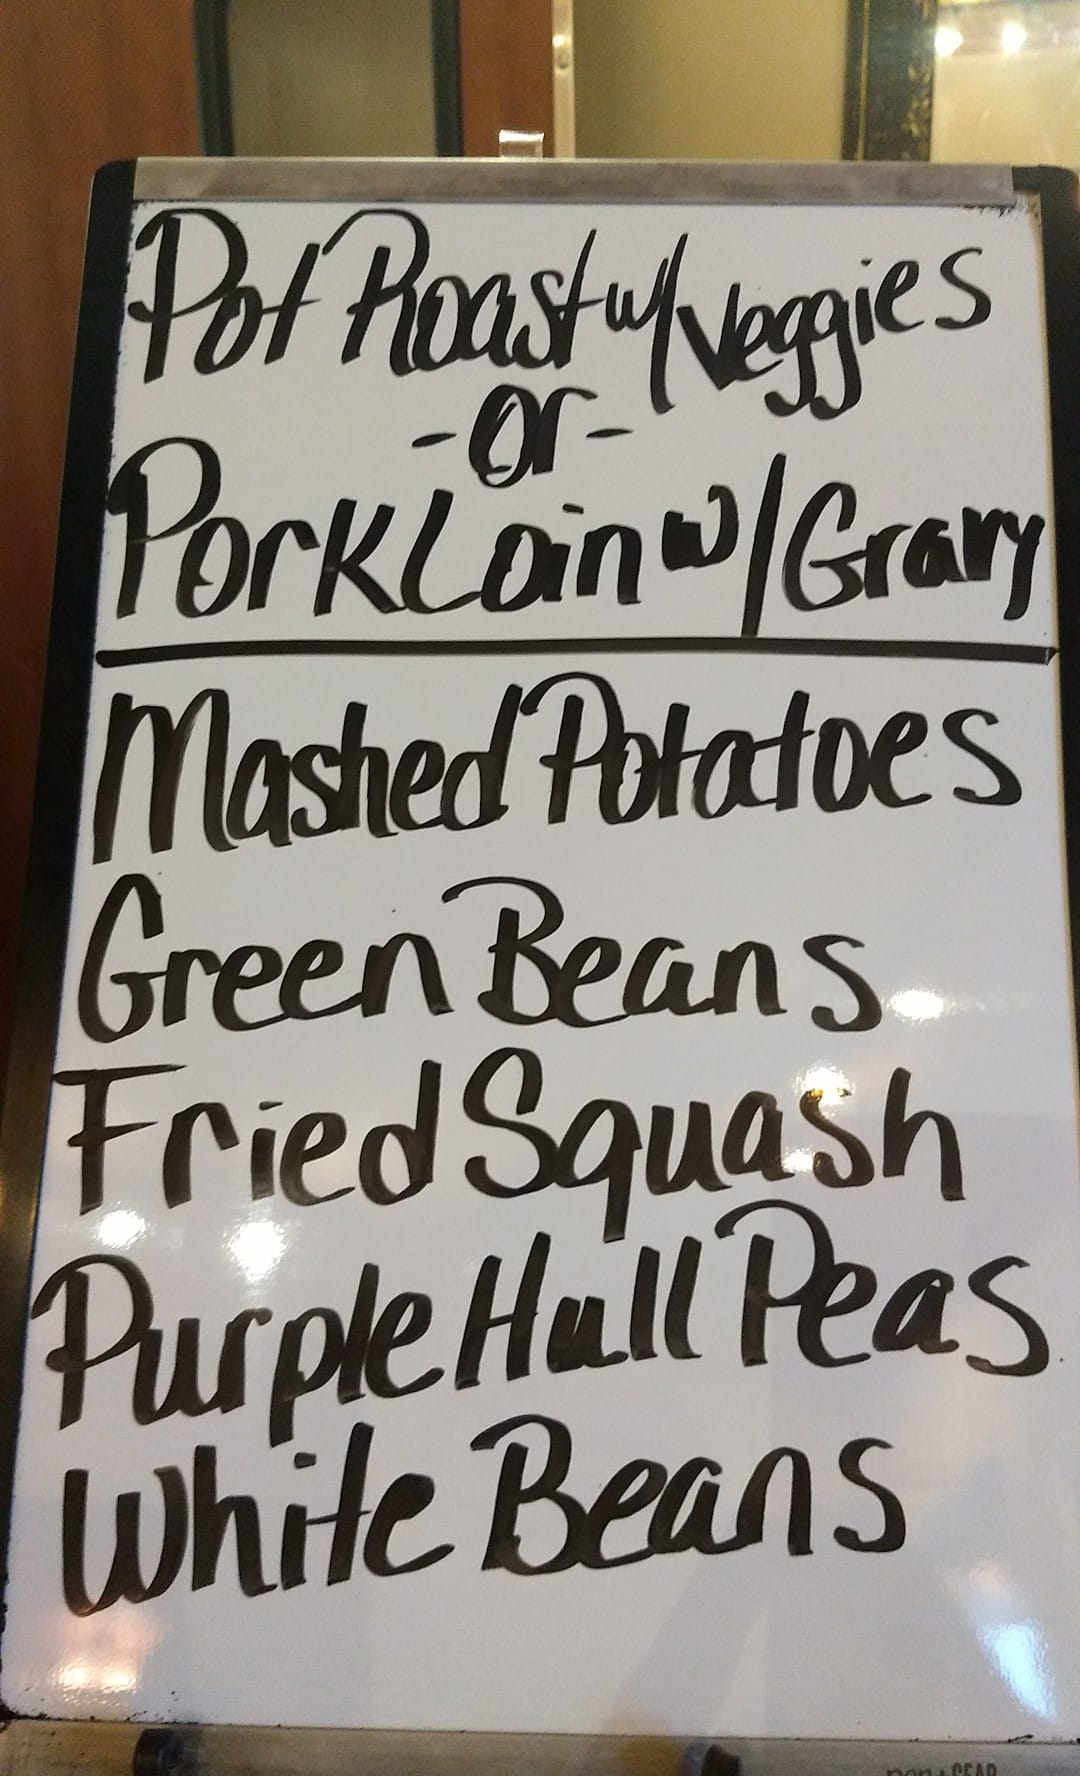 Pot Roast w/ Veggies
-or-
Pork Loin w/ Gravy
Mashed Potatoes
Green Beans
Fried Squash
Purple Hull Peas
White Beans